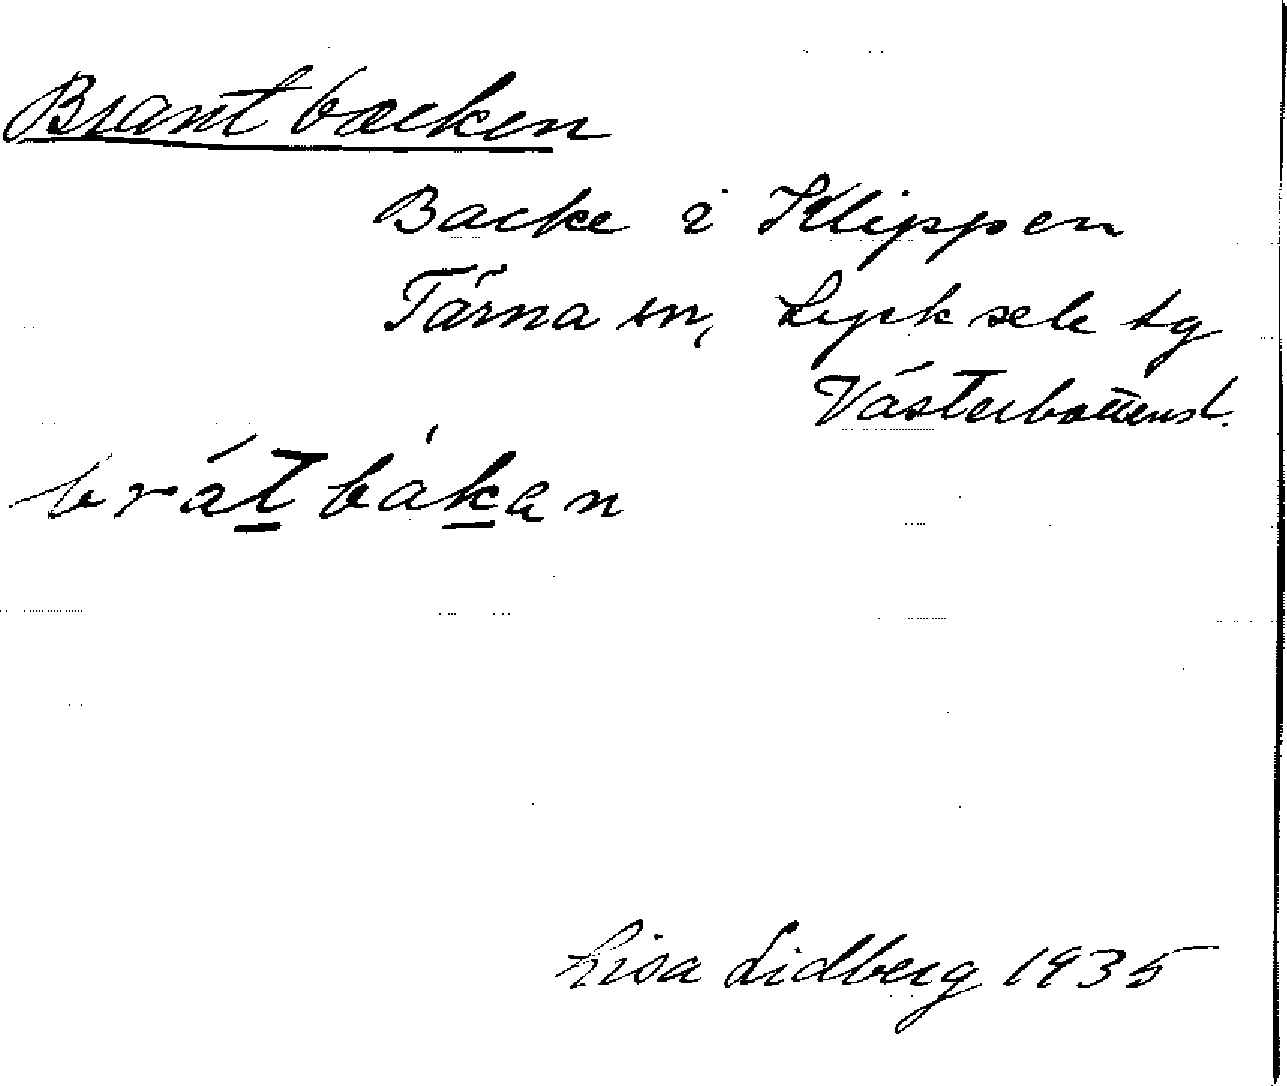 Brantbacken
Backe i Klippen
Tärna sn, Lycksele tg
Västerbottensl.
brát̲bák̲an
Lisa Lidberg 1935